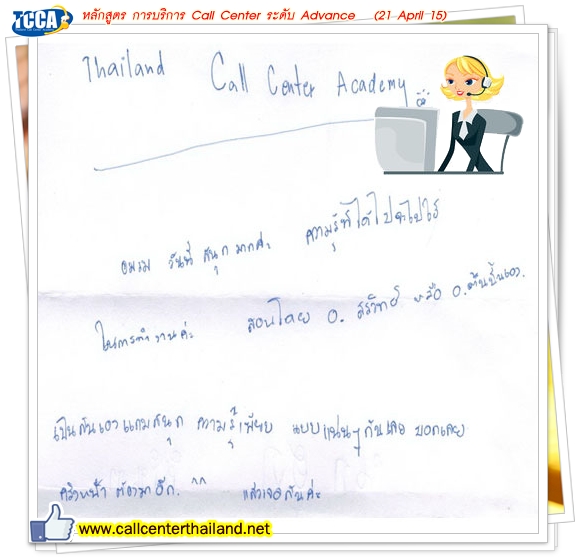 TCCA
หลักสูตร การบริการ Call Center ระดับ Advance (21 April 15)
Thailand Call Center Academy
อบรม วันที่ สนุก มากค่ะ ความรู้ที่ได้ไป
ในการทำงานค่ะ สอนโดย อ. หรือ อ.
เป็นกันเองแถมสนุก ความรู้เพียบ แบบแน่นๆกันเลย บอกเลย
ครั้งหน้า ต้องมาอีก. ^^ แล้วเจอกันค่ะ
www.callcenterthailand.net